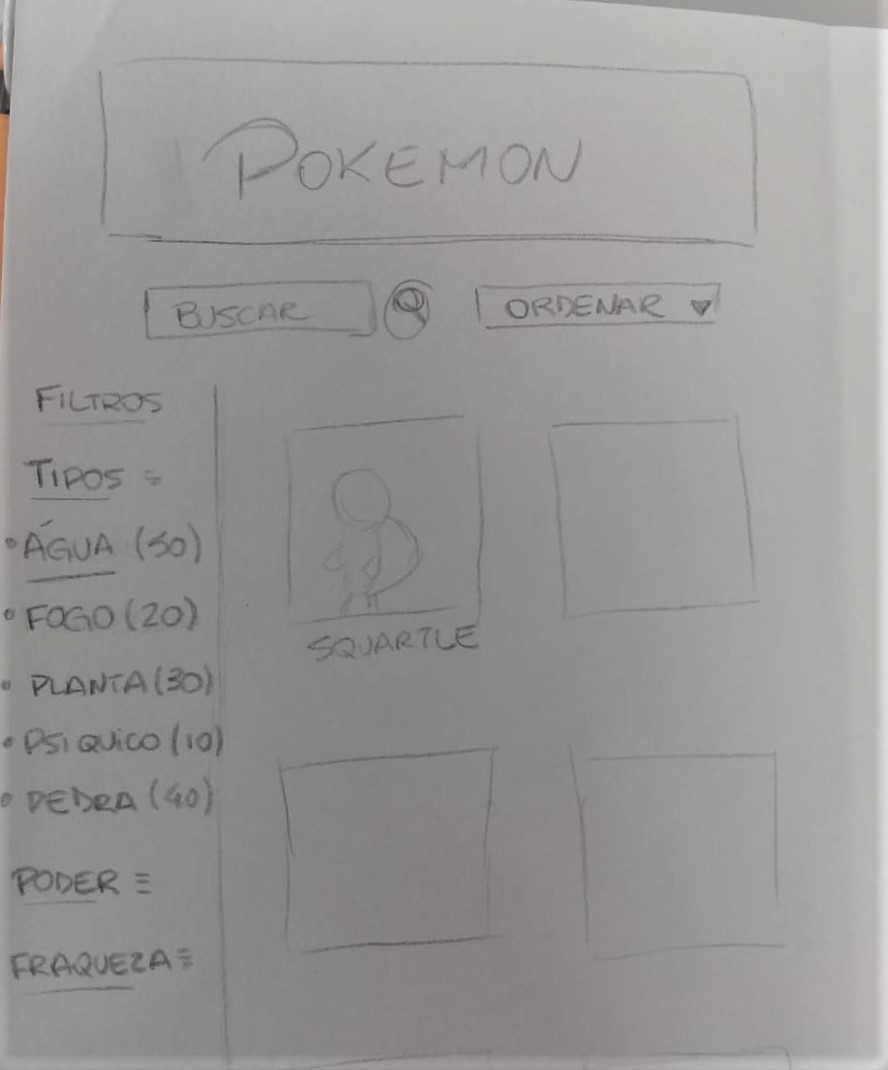 POKEMON
BUSCAR ORDENAR
FILTROS
TIPOS
• ÁGUA (50)
• FOGO (20)
• PLANTA (30)
• PSIQUICO (10)
• PEDRA (40)
PODER
FRAQUEZA
SQUARTLE